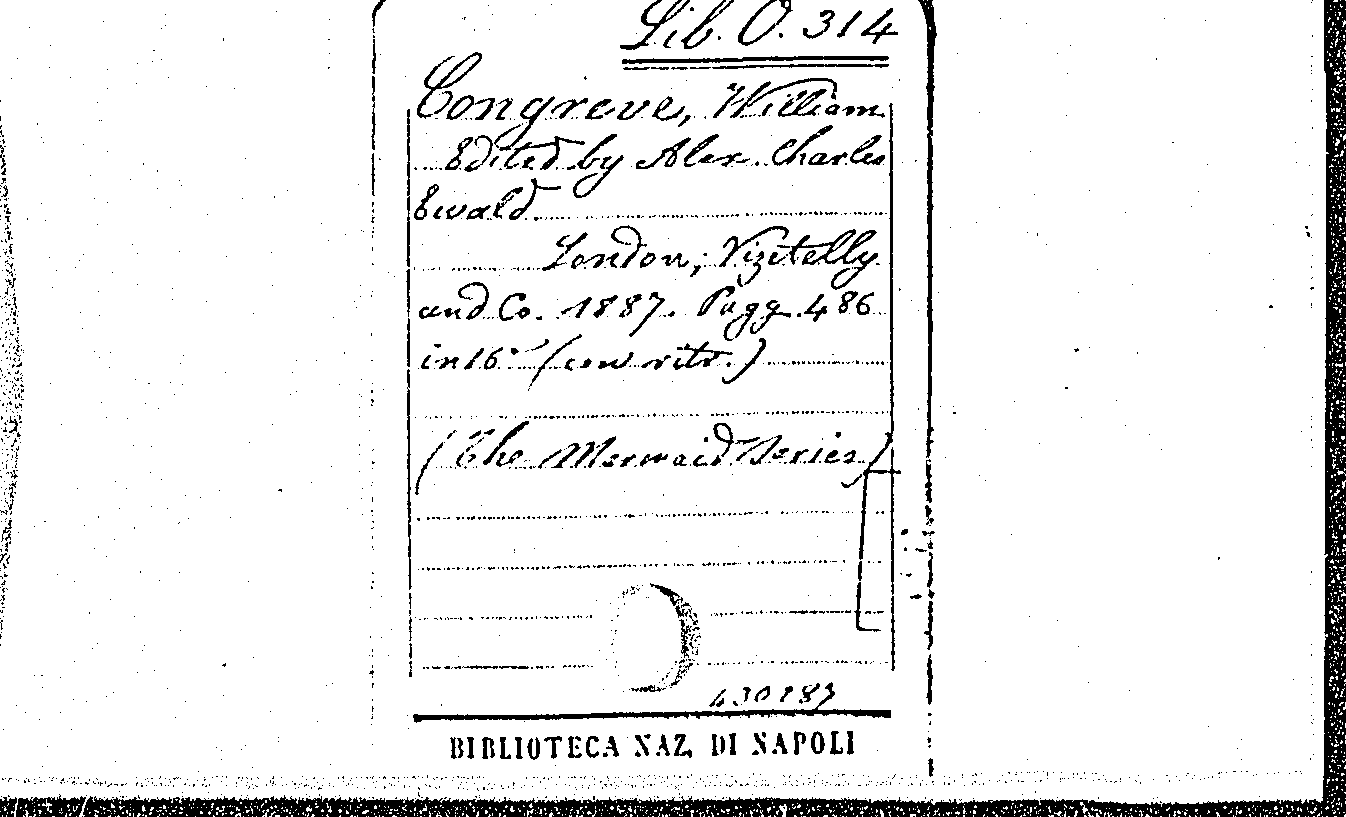 Lib. O. 314
Congreve, William
Edited by Alex. Charles
Ewald.
London, Vizetelly
and Co. 1887. Pagg. 486
in 16° (con ritr.)
(The Mermaid Series)
430187
BIBLIOTECA NAZ. DI NAPOLI